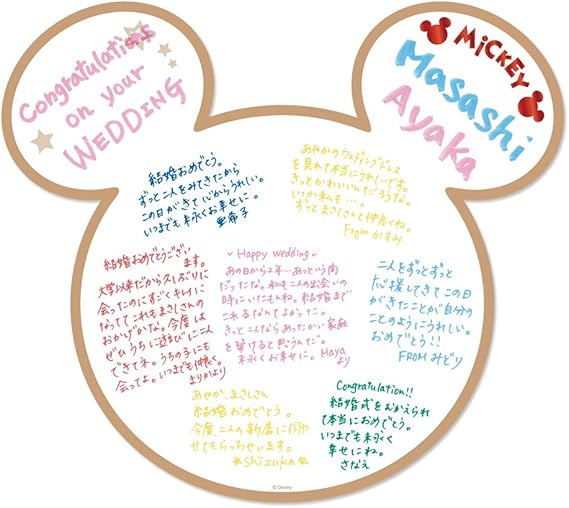 Congratulations
on your
WEDDING
MiCKEY
Masashi
Ayaka
結婚おめでとう。
ずっと二人をみてきたから
この日がきて心からうれしい。
いつまでも末永くお幸せに。
亜希子
あやかのウェディングドレス
を見れて本当にうれしいです。
きっとかわいいんだろうな。
いつか私も…。
ずっとまさしさんと仲良くね。
From かすみ
結婚おめでとうござい
ます。
大学以来だから久しぶりに
会ったのにすごくキレイに
なっててこれもまさしさんの
おかげかな。今度は
ぜひうちに遊びに二人
できてネ。うちの子にも
会ってよ。いつまでも仲良く。
まりかより
Happy wedding
あの日から2年…あっという間
だったな。私も二人の出会いの
時にいたもんね。結婚まで
これるなんてよかった。
きっと二人ならあったかい家庭
を築けると思うんだ。
末永くお幸せに。Maya
より
二人をずっとずっと
応援してきてこの日
がきたことが自分の
ことのようにうれしい。
おめでとう!!
FROM みどり
あやか、まさしさん
結婚おめでとう。
今度、二人の新居に伺わ
せてもらっちゃいます。
Shizuka
Congratulation!!
結婚式をむかえられ
て本当におめでとう。
いつまでも末永く
幸せにね。
さなえ
© Disney